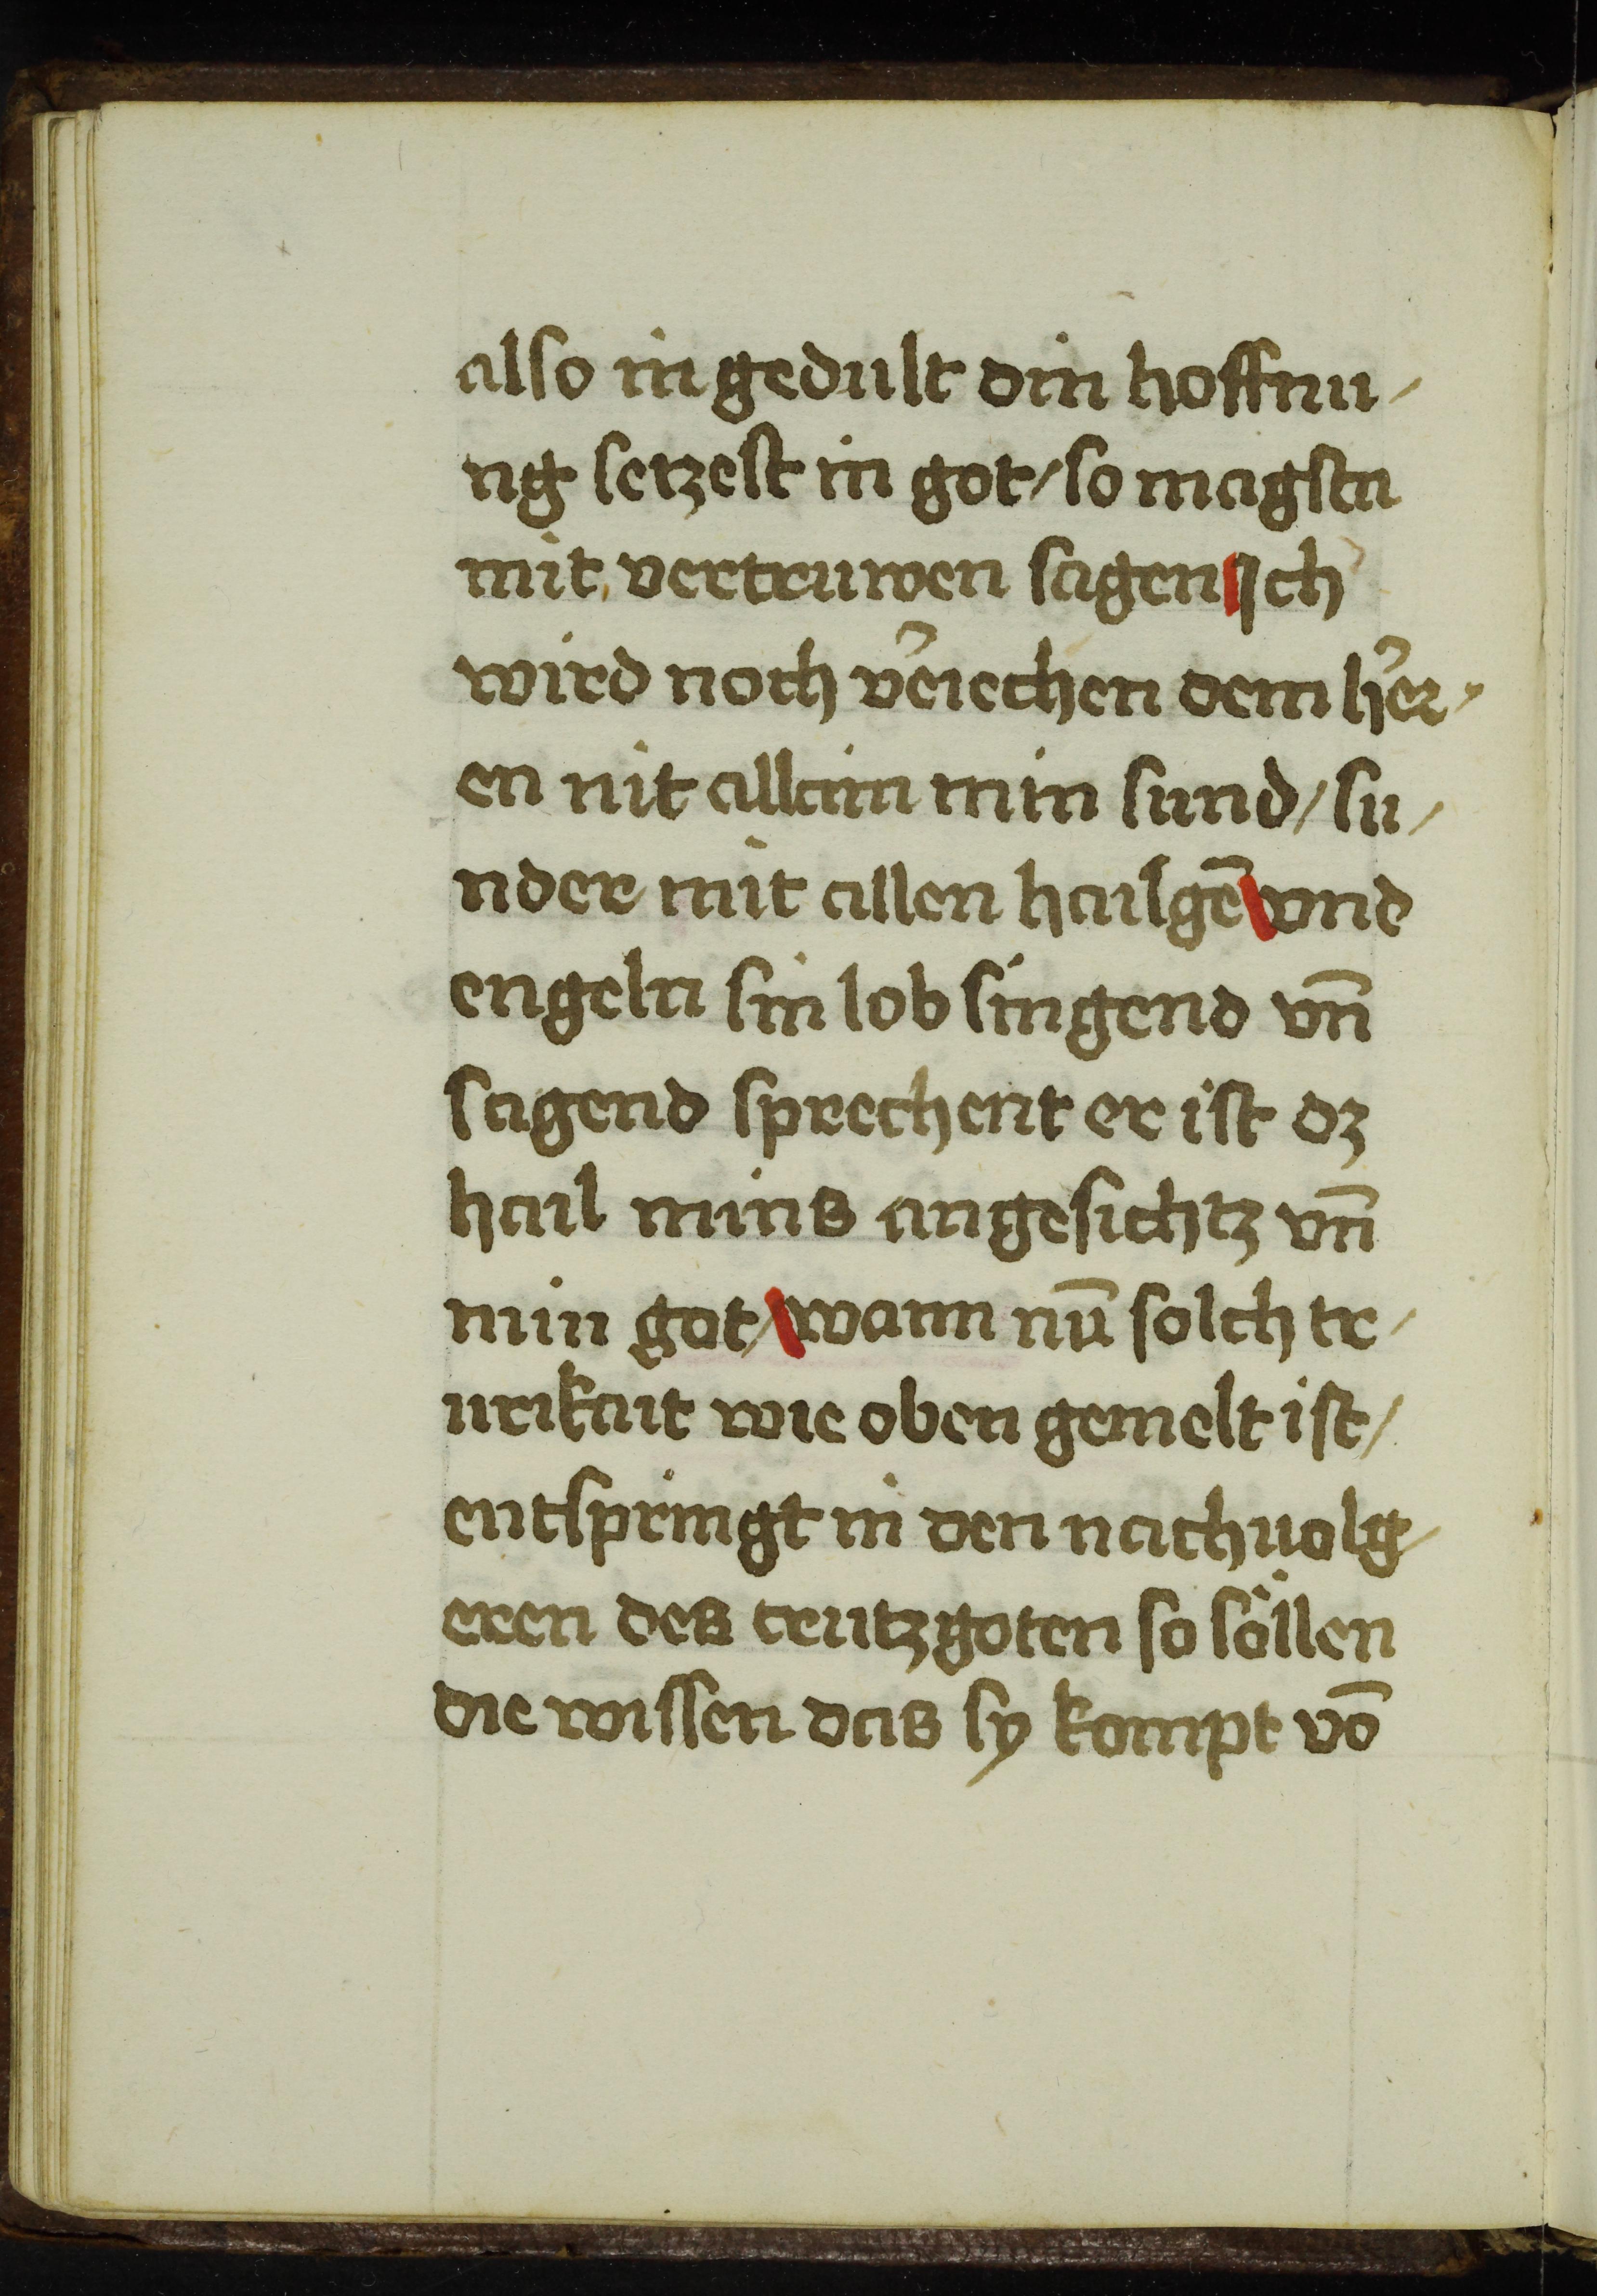 also in gedult din hoffnu/
ng setzest in got/ so magstu
mit vertruwen sagen Ich
wird noch v͛eiechen dem h͛er/
en nit allain min sund/ su/
nder mit allen hailgē vnd
engeln sin lob singend vn̄
sagend sprechent er ist dz
hail mins angesichtz vn̄
min got/ wann nū solch tr/
urikait wie oben gemelt ist/
entspringt in den nachuolg/
eren des crutzgoten so söllen
die wissen das sy kompt vō